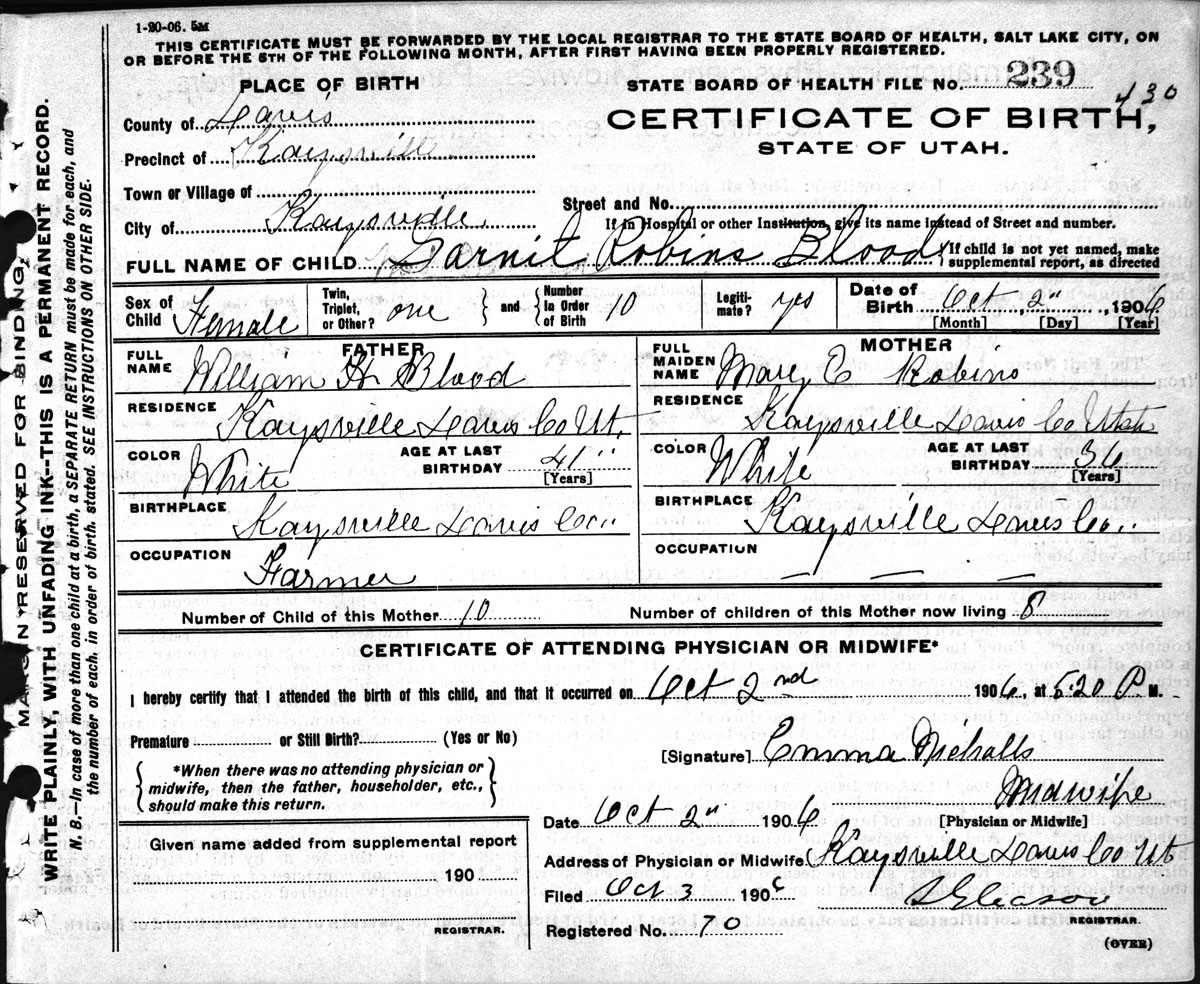 1-20-06. 5M
THIS CERTIFICATE MUST BE FORWARDED BY THE LOCAL REGISTRAR TO THE STATE BOARD OF HEALTH, SALT LAKE CITY, ON
OR BEFORE THE 5TH OF THE FOLLOWING MONTH, AFTER FIRST HAVING BEEN PROPERLY REGISTERED.
PLACE OF BIRTH
STATE BOARD OF HEALTH FILE No. 239
430
County of Davis
CERTIFICATE OF BIRTH,
STATE OF UTAH.
Precinct of Kaysville
Town or Village of
Street and No.
City of Kaysville
If in Hospital or other Institution, give its name instead of Street and number.
FULL NAME OF CHILD Garnit Robins Blood
{If child is not yet named, make
supplemental report, as directed
Sex of Child Female
Twin, Triplet, or Other? one
} and {
Number In Order of Birth 10
Legiti-mate? yes
Date of Birth Oct, 2", 1906
[Month] [Day] [Year]
FATHER
FULL NAME William H Blood
RESIDENCE Kaysville Davis Co Ut.
COLOR White
AGE AT LAST BIRTHDAY 41 "
[Years]
BIRTHPLACE Kaysville Davis Co "
OCCUPATION Farmer
MOTHER
FULL MAIDEN NAME Mary E Robins
RESIDENCE Kaysville Davis Co Utah
COLOR White
AGE AT LAST BIRTHDAY 36
[Years]
BIRTHPLACE Kaysville Davis Co "
OCCUPATION — — —
Number of Child of this Mother 10
Number of children of this Mother now living 8
CERTIFICATE OF ATTENDING PHYSICIAN OR MIDWIFE*
I hereby certify that I attended the birth of this child, and that it occurred on Oct 2nd 1906, at 5:20 P. M.
Premature or Still Birth? (Yes or No)
[Signature] Emma Nicholls
{ *When there was no attending physician or
midwife, then the father, householder, etc.,
should make this return. }
Midwife
Date Oct 2" 1906
[Physician or Midwife]
Given name added from supplemental report
190
REGISTRAR.
Address of Physician or Midwife Kaysville Davis Co Ut
Filed Oct 3 1906
S Gleason
REGISTRAR.
Registered No. 70
(OVER)
MARGIN RESERVED FOR BINDING.
WRITE PLAINLY, WITH UNFADING INK--THIS IS A PERMANENT RECORD.
N. B.—In case of more than one child at a birth, a SEPARATE RETURN must be made for each, and
the number of each, in order of birth, stated. SEE INSTRUCTIONS ON OTHER SIDE.